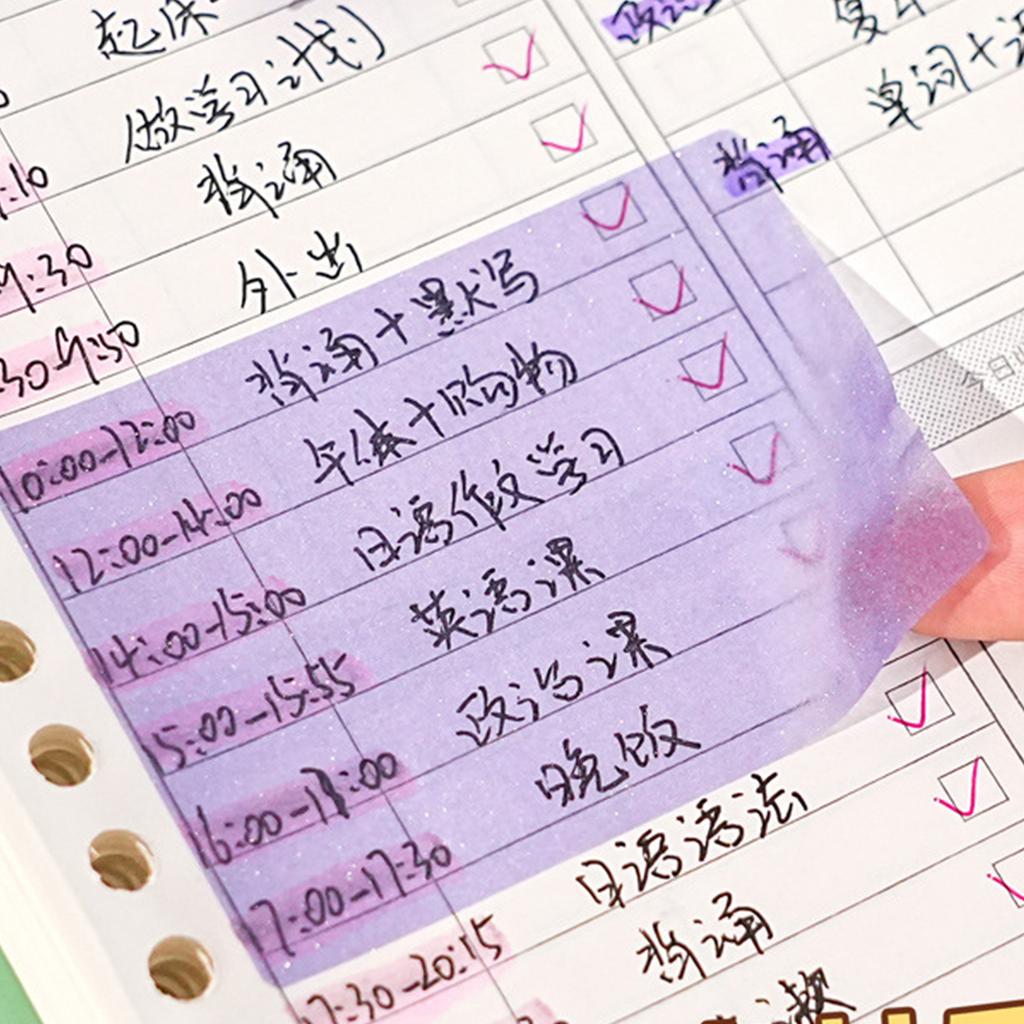 起床
:10 做学习计划
9:30 背诵
30-9:50 外出
10:00-12:00 背诵+默写
12:00-14:00 午休+购物
14:00-15:00 日语作文学习
15:00-15:55 英语课
16:00-17:00 政治课
17:00-17:30 晚饭
17:30-20:15 日语语法
背诵
政治
单词+语
背诵
今日